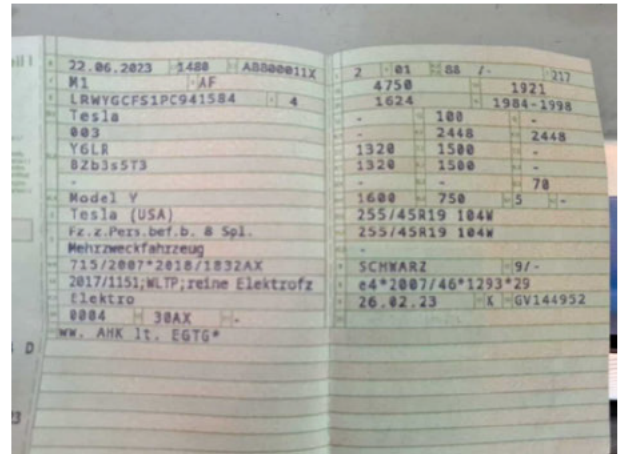 22.06.2023 1480 A8800011X
M1 AF
LRWYGCFS1PC941584 4
Tesla
003
Y6LR
BZb3s5T3
-
Model Y
Tesla (USA)
Fz.z.Pers.bef.b. 8 Spl.
Mehrzweckfahrzeug
715/2007*2018/1832AX
2017/1151;WLTP;reine Elektrofz
Elektro
0004 30AX -
ww. AHK lt. EGTG*
2 01 88 /- 217
4750 1921
1624 1984-1998
- 100 -
- 2448 2448
1320 1500 -
1320 1500 -
- - 70
1600 750 5 -
255/45R19 104W
255/45R19 104W
-
SCHWARZ 9/-
e4*2007/46*1293*29
26.02.23 K GV144952
D